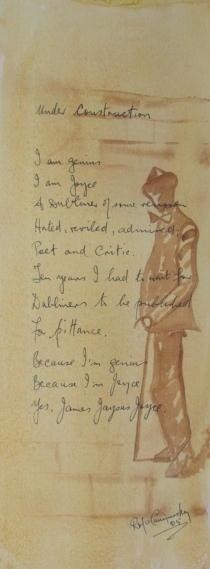 Under Construction
I am genius
I am Joyce
A Dubliner of some renown
Hated, reviled, admired.
Poet and Critic.
Ten years I had to wait for
Dubliners to be published
for pittance.
Because I'm genius
Because I'm Joyce
Yes, James Jaysus Joyce.
05